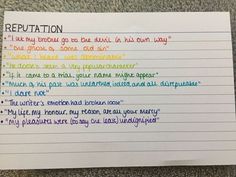 REPUTATION
• "I let my brother go to the devil in his own way"
• "the ghost of some old sin"
• "what I heard was abominable"
• "he doesn't seem a very popular character"
• "if it came to a trial, your name might appear"
• "Much in his past was unearthed, indeed and all disreputable"
• "I dare not"
• "The writer's emotion had broken loose"
• "My life, my honour, my reason, are all your mercy"
• "my pleasures were (to say the least) undignified"